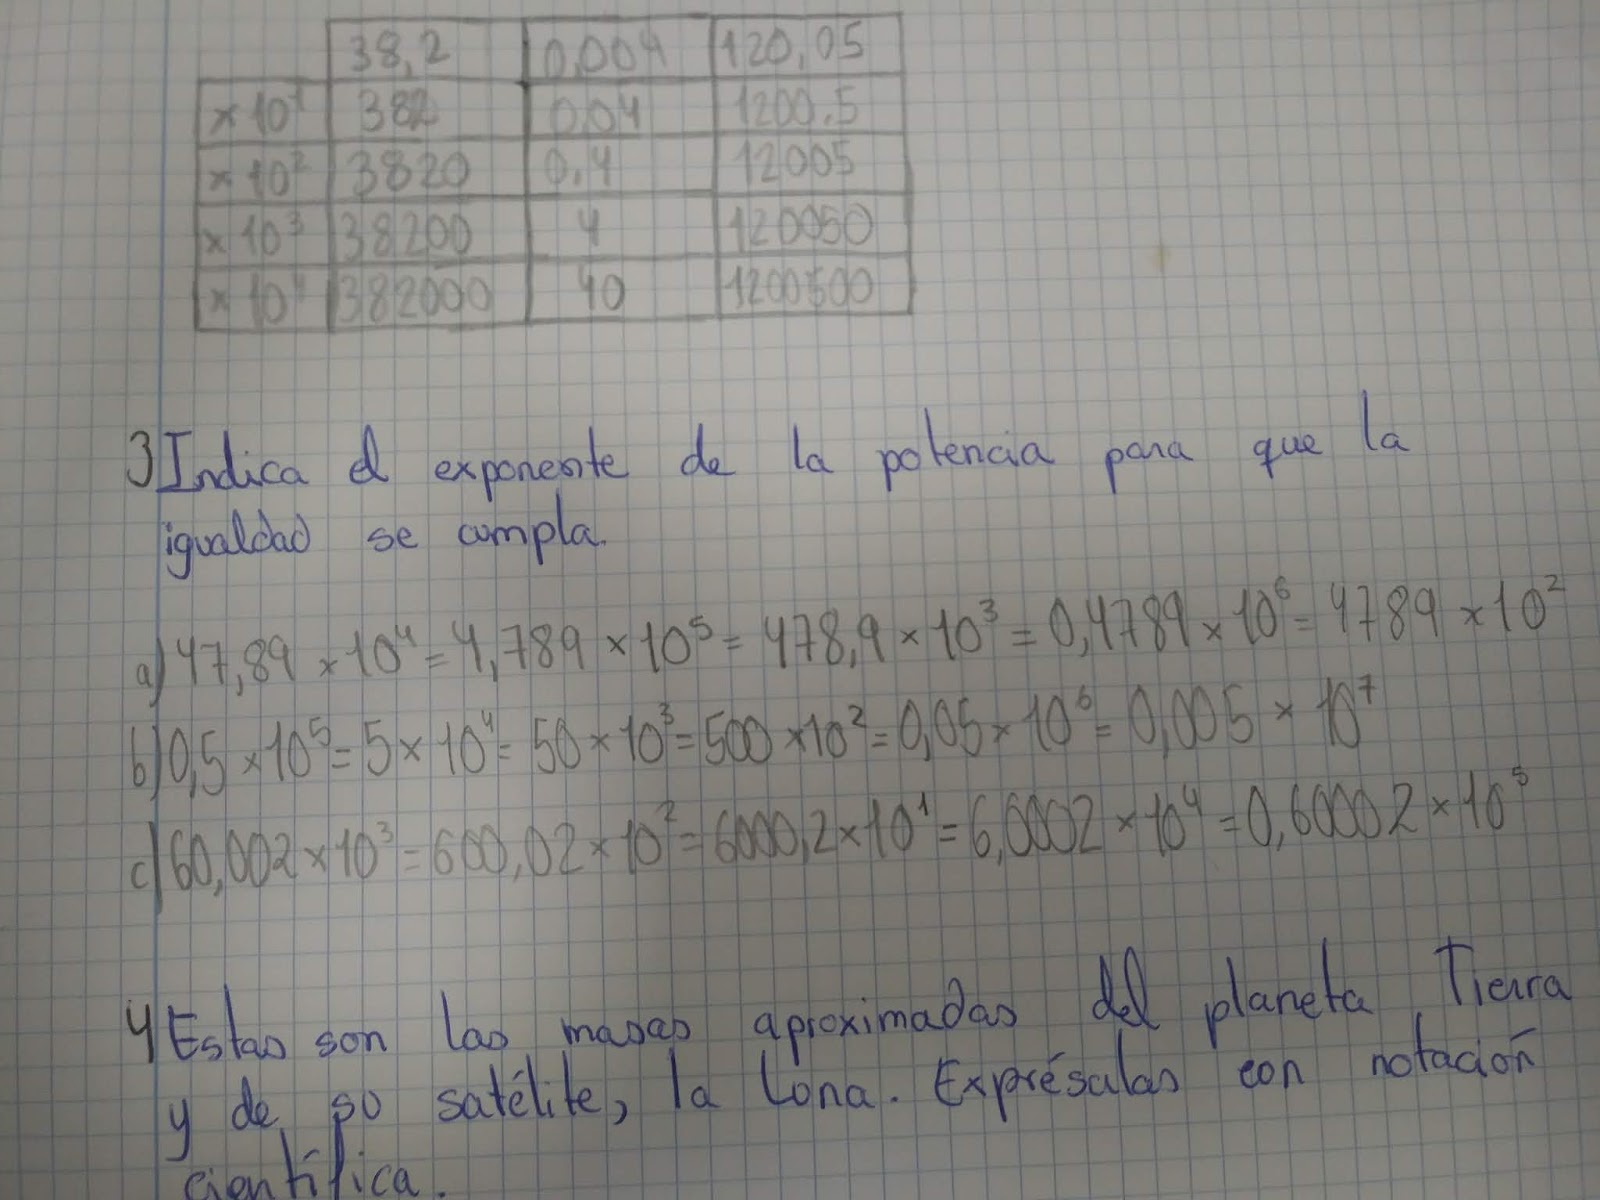 38,2 0,004 120,05
×10¹ 382 0,04 1200.5
×10² 3820 0.4 12005
×10³ 38200 4 120050
×10⁴ 382000 40 1200500
3 Indica el exponente de la potencia para que la
igualdad se cumpla.
a) 47,89 ×10⁴ = 4,789 ×10⁵ = 478,9 ×10³ = 0,4789 ×10⁶ = 4789 ×10²
b) 0,5 ×10⁵ = 5×10⁴ = 50×10³ = 500×10² = 0,05×10⁶ = 0,005 × 10⁷
c) 60,002×10³ = 600,02×10² = 6000,2×10¹ = 6,0002 ×10⁴ = 0,60002×10⁵
4 Estas son las masas aproximadas del planeta Tierra
y de su satélite, la Luna. Exprésalas con notación
científica.